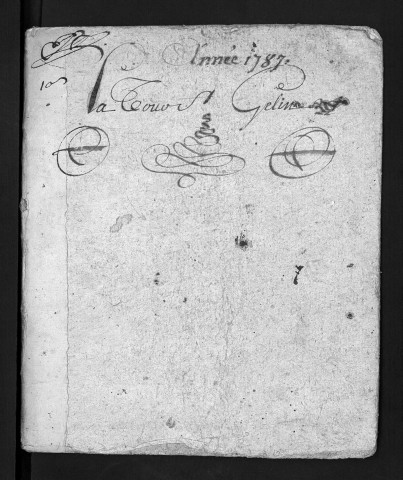 Année 1787.
La Tour St Geline